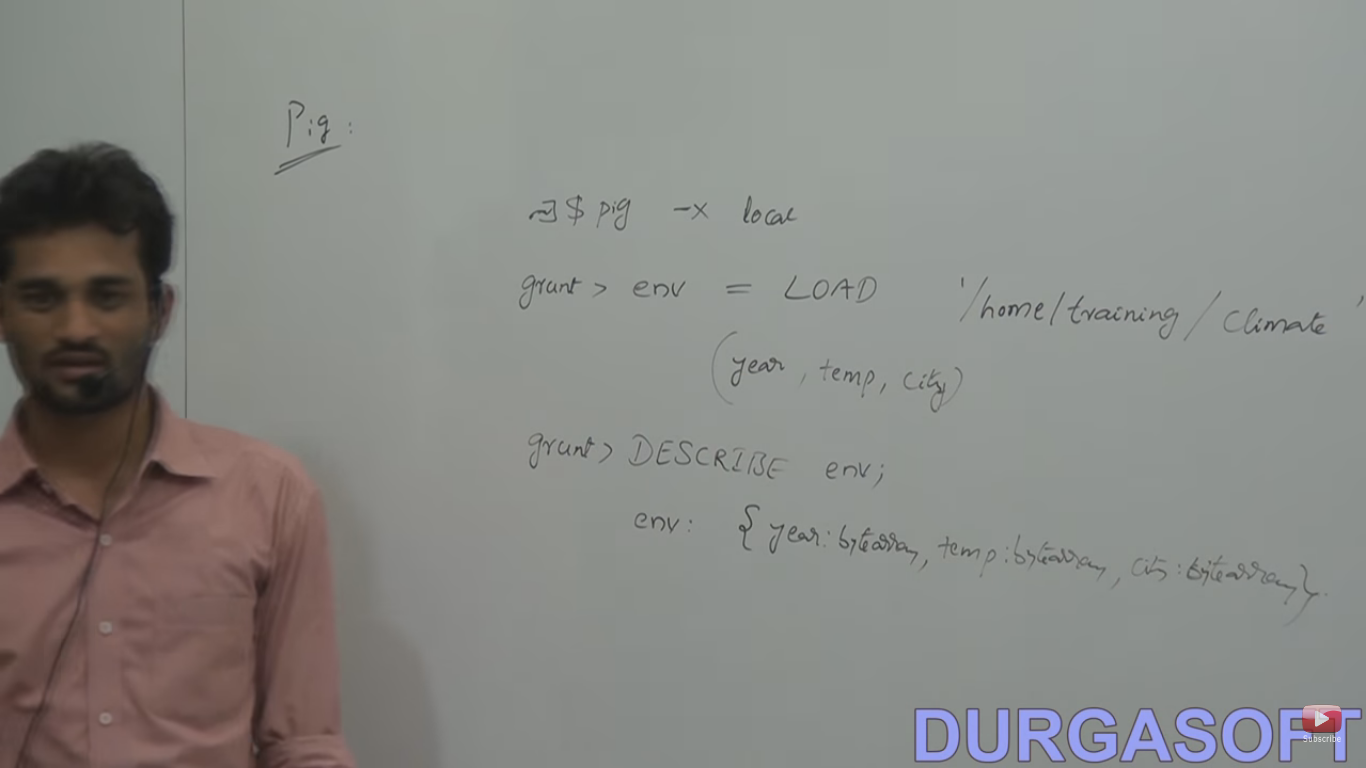 Pig:
~]$ pig -x local
grunt> env = LOAD '/home/training/climate'
(year, temp, city)
grunt> DESCRIBE env;
env: {year:bytearray, temp:bytearray, city:bytearray}.
DURGASOFT
Subscribe